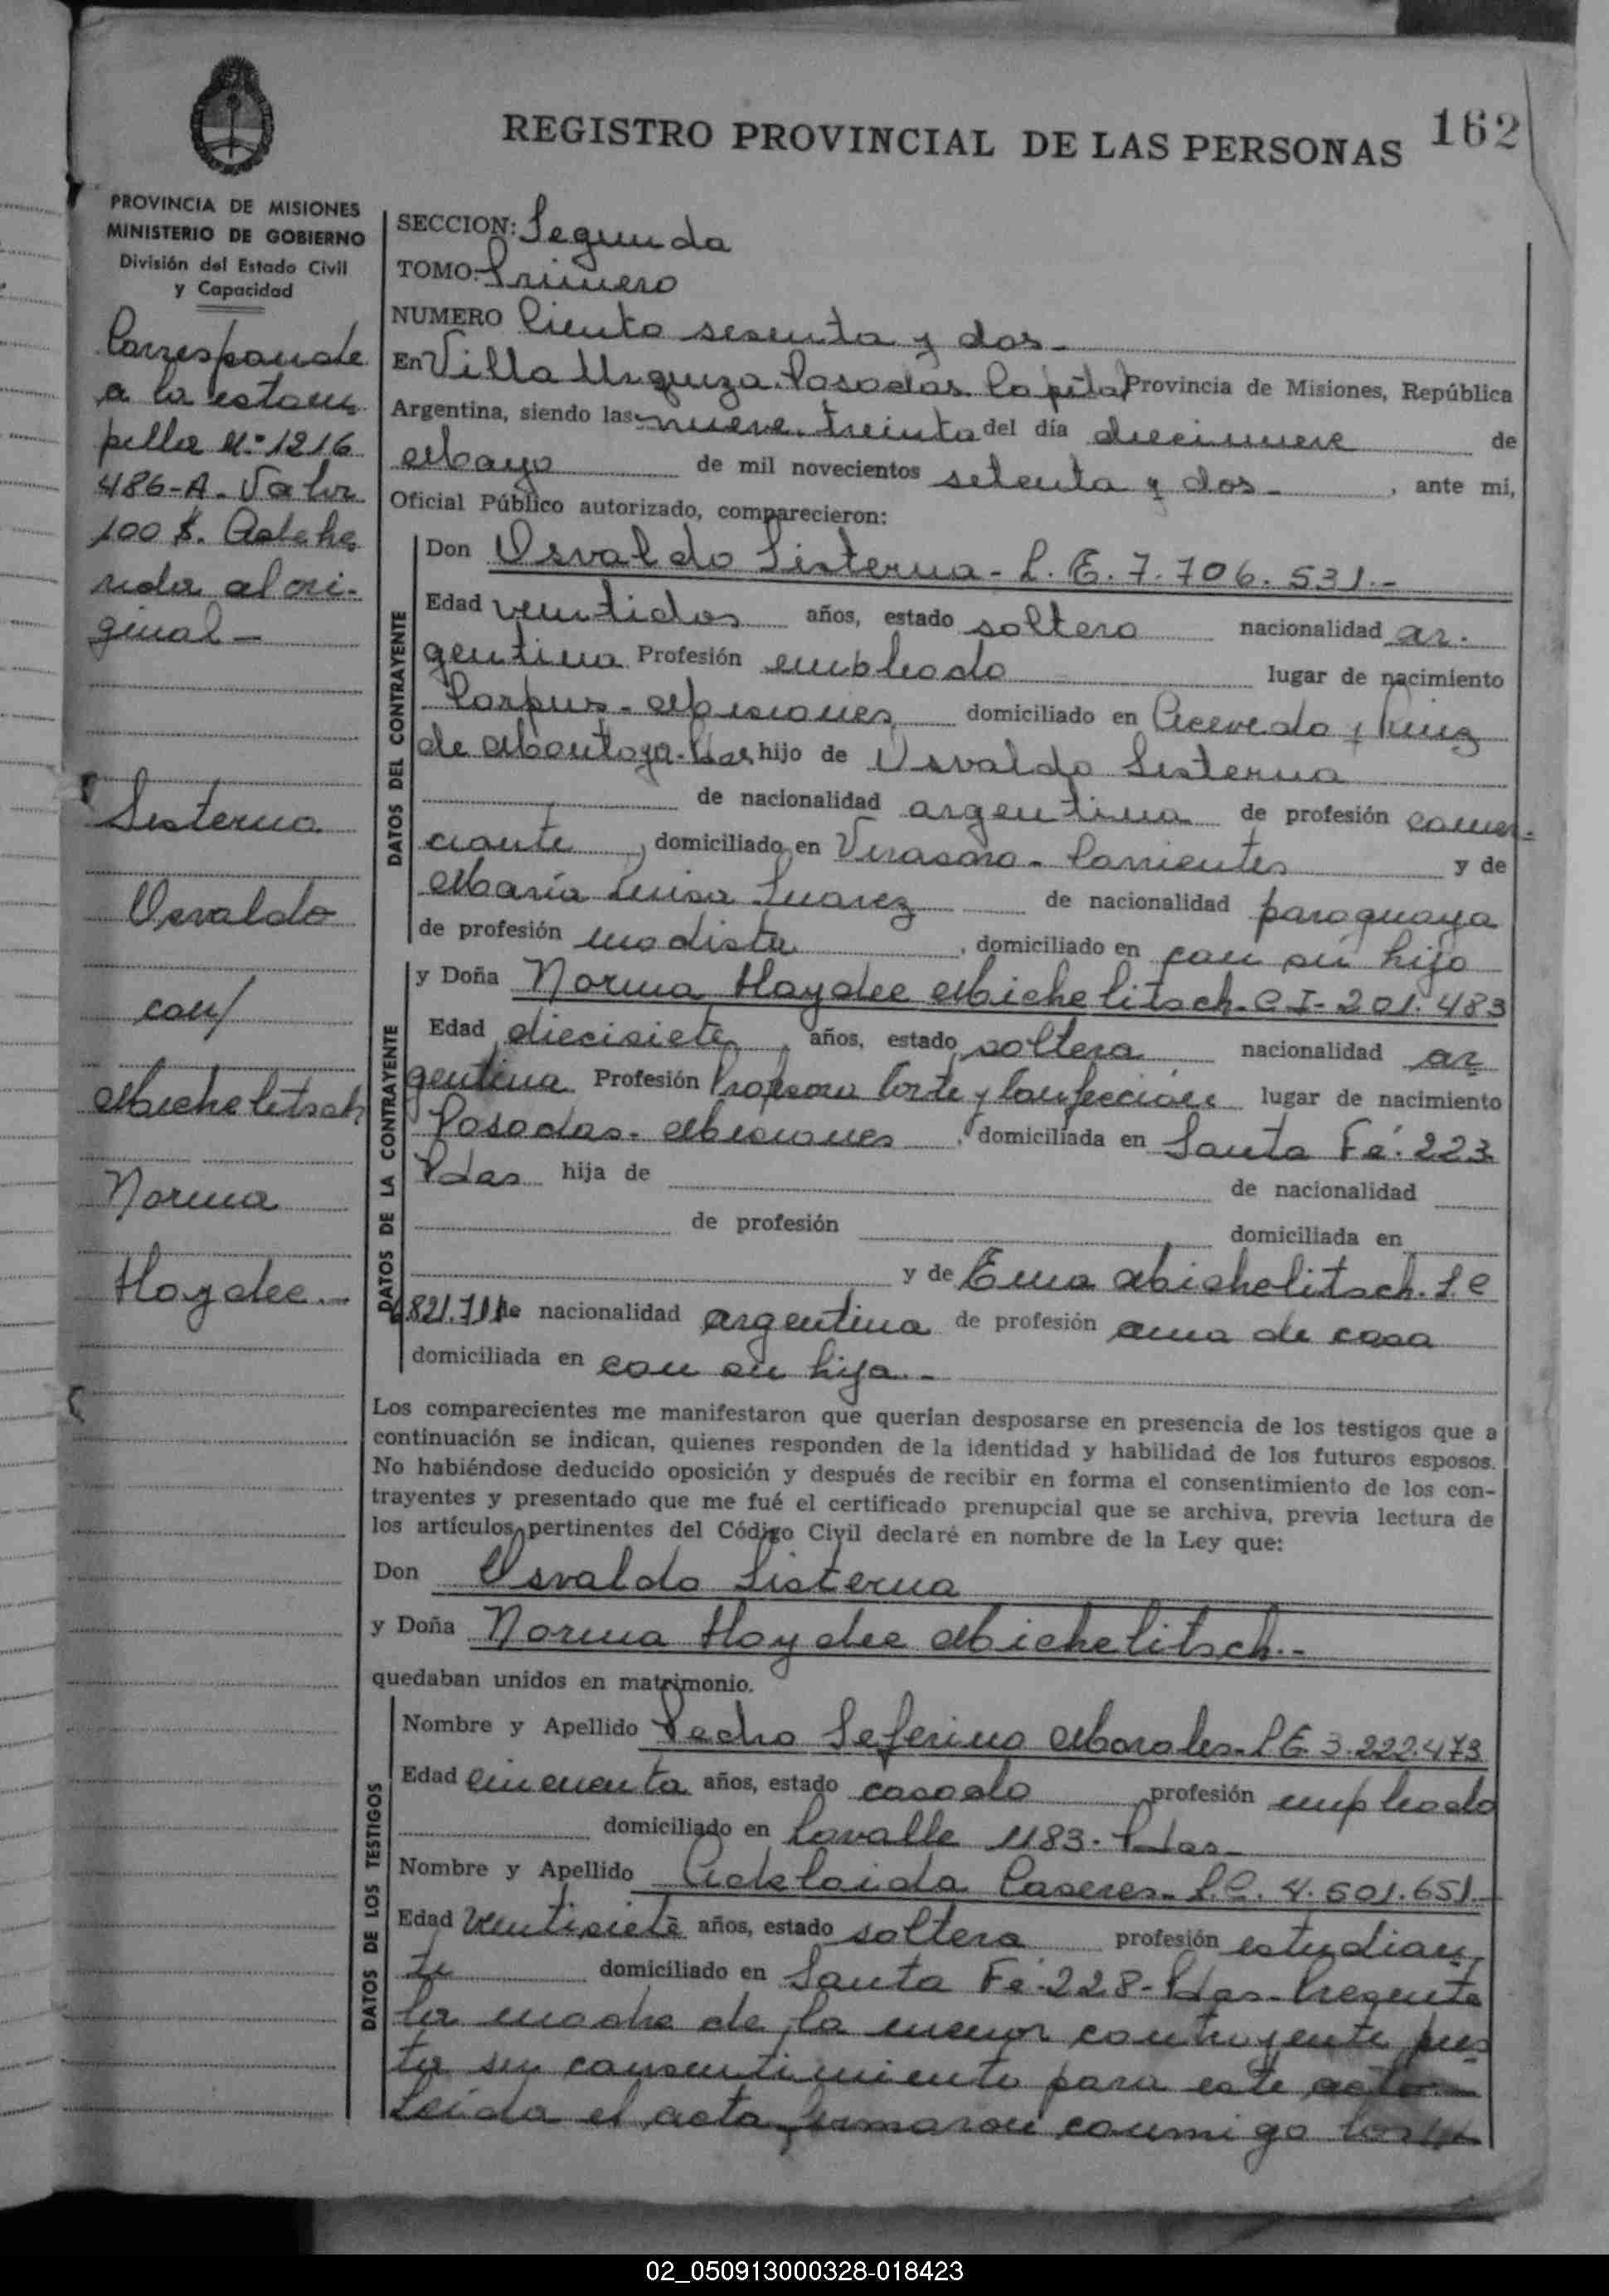 REGISTRO PROVINCIAL DE LAS PERSONAS 162
PROVINCIA DE MISIONES
MINISTERIO DE GOBIERNO
División del Estado Civil
y Capacidad
Corresponde
a la estam
pilla Nº 1216
486-A. Valor
100 $. Adehe
rida al ori-
ginal -
Sisterna
Osvaldo
con/
Michelitsch
Norma
Haydee.-
SECCION: Segunda
TOMO: Primero
NUMERO Ciento sesenta y dos -
En Villa Urquiza. Posadas Capital Provincia de Misiones, República
Argentina, siendo las nueve. treinta del día diecinueve de
Mayo de mil novecientos setenta y dos - , ante mi,
Oficial Público autorizado, comparecieron:
DATOS DEL CONTRAYENTE
Don Osvaldo Sisterna - L. E. 7. 706. 531.-
Edad veintidos años, estado soltero nacionalidad ar-
gentina Profesión empleado lugar de nacimiento
Corpus - Misiones domiciliado en Acevedo y Ruiz
de Montoya - Pdas hijo de Osvaldo Sisterna
de nacionalidad argentina de profesión comer-
ciante , domiciliado en Virasoro - Corrientes y de
María Luisa Suarez de nacionalidad paraguaya
de profesión modista , domiciliado en con su hijo
DATOS DE LA CONTRAYENTE
y Doña Norma Haydee Michelitsch - C. I - 201. 483
Edad diecisiete , años, estado soltera nacionalidad ar
gentina Profesión Profesora Corte y Confección lugar de nacimiento
Posadas - Misiones , domiciliada en Santa Fé. 223
Pdas hija de de nacionalidad
de profesión domiciliada en
y de Ema Michelitsch. L. C
821.711 de nacionalidad argentina de profesión ama de casa
domiciliada en con su hija.-
Los comparecientes me manifestaron que querían desposarse en presencia de los testigos que a
continuación se indican, quienes responden de la identidad y habilidad de los futuros esposos.
No habiéndose deducido oposición y después de recibir en forma el consentimiento de los con-
trayentes y presentado que me fué el certificado prenupcial que se archiva, previa lectura de
los artículos pertinentes del Código Civil declaré en nombre de la Ley que:
Don Osvaldo Sisterna
y Doña Norma Haydee Michelitsch.-
quedaban unidos en matrimonio.
DATOS DE LOS TESTIGOS
Nombre y Apellido Pedro Seferino Morales - L E. 3. 222. 473
Edad cincuenta años, estado casado profesión empleado
domiciliado en Lavalle 1183 - Pdas -
Nombre y Apellido Adelaida Caseres - L. C. 4. 601. 651.-
Edad veintisiete años, estado soltera profesión estudian
te domiciliado en Santa Fé - 228 - Pdas - Presente
la madre de la menor contrayente pres
ta su consentimiento para este acto -
Leída el acta firmaron conmigo los
02_050913000328-018423